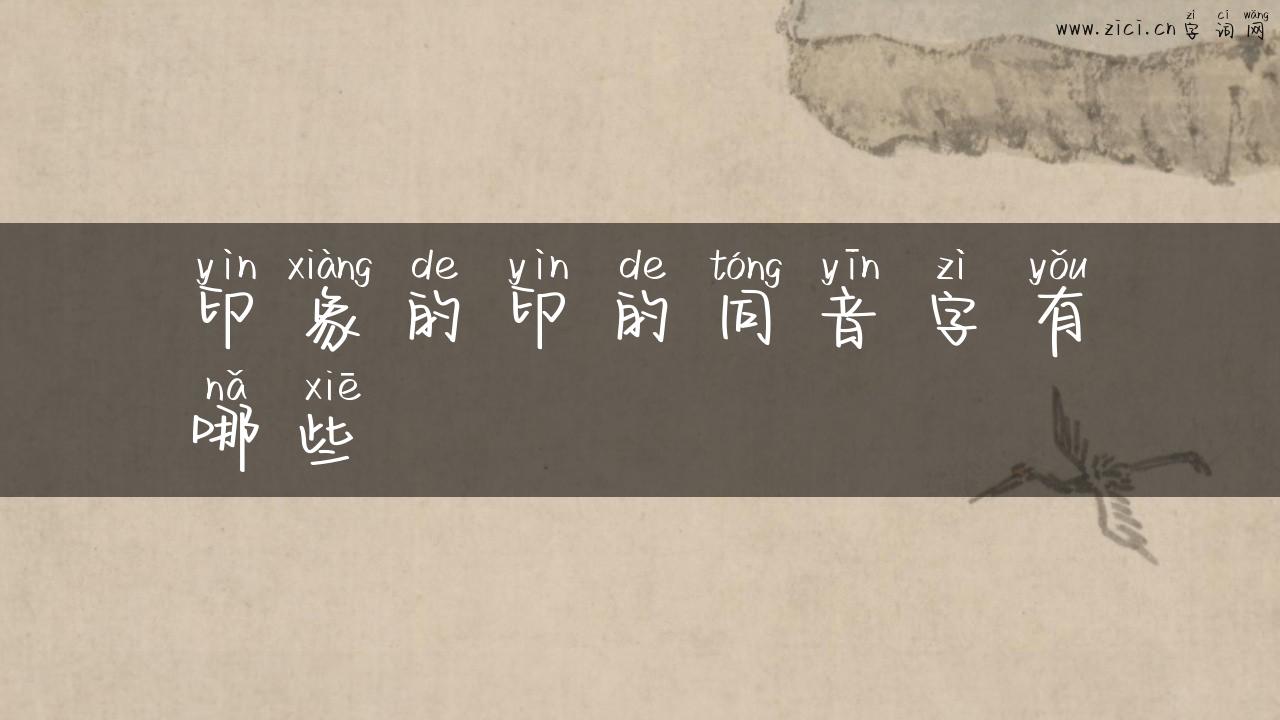 zì cí wǎng
www.zici.cn 字词网
yìn xiàng de yìn de tóng yīn zì yǒu
印象的印的同音字有
nǎ xiē
哪些